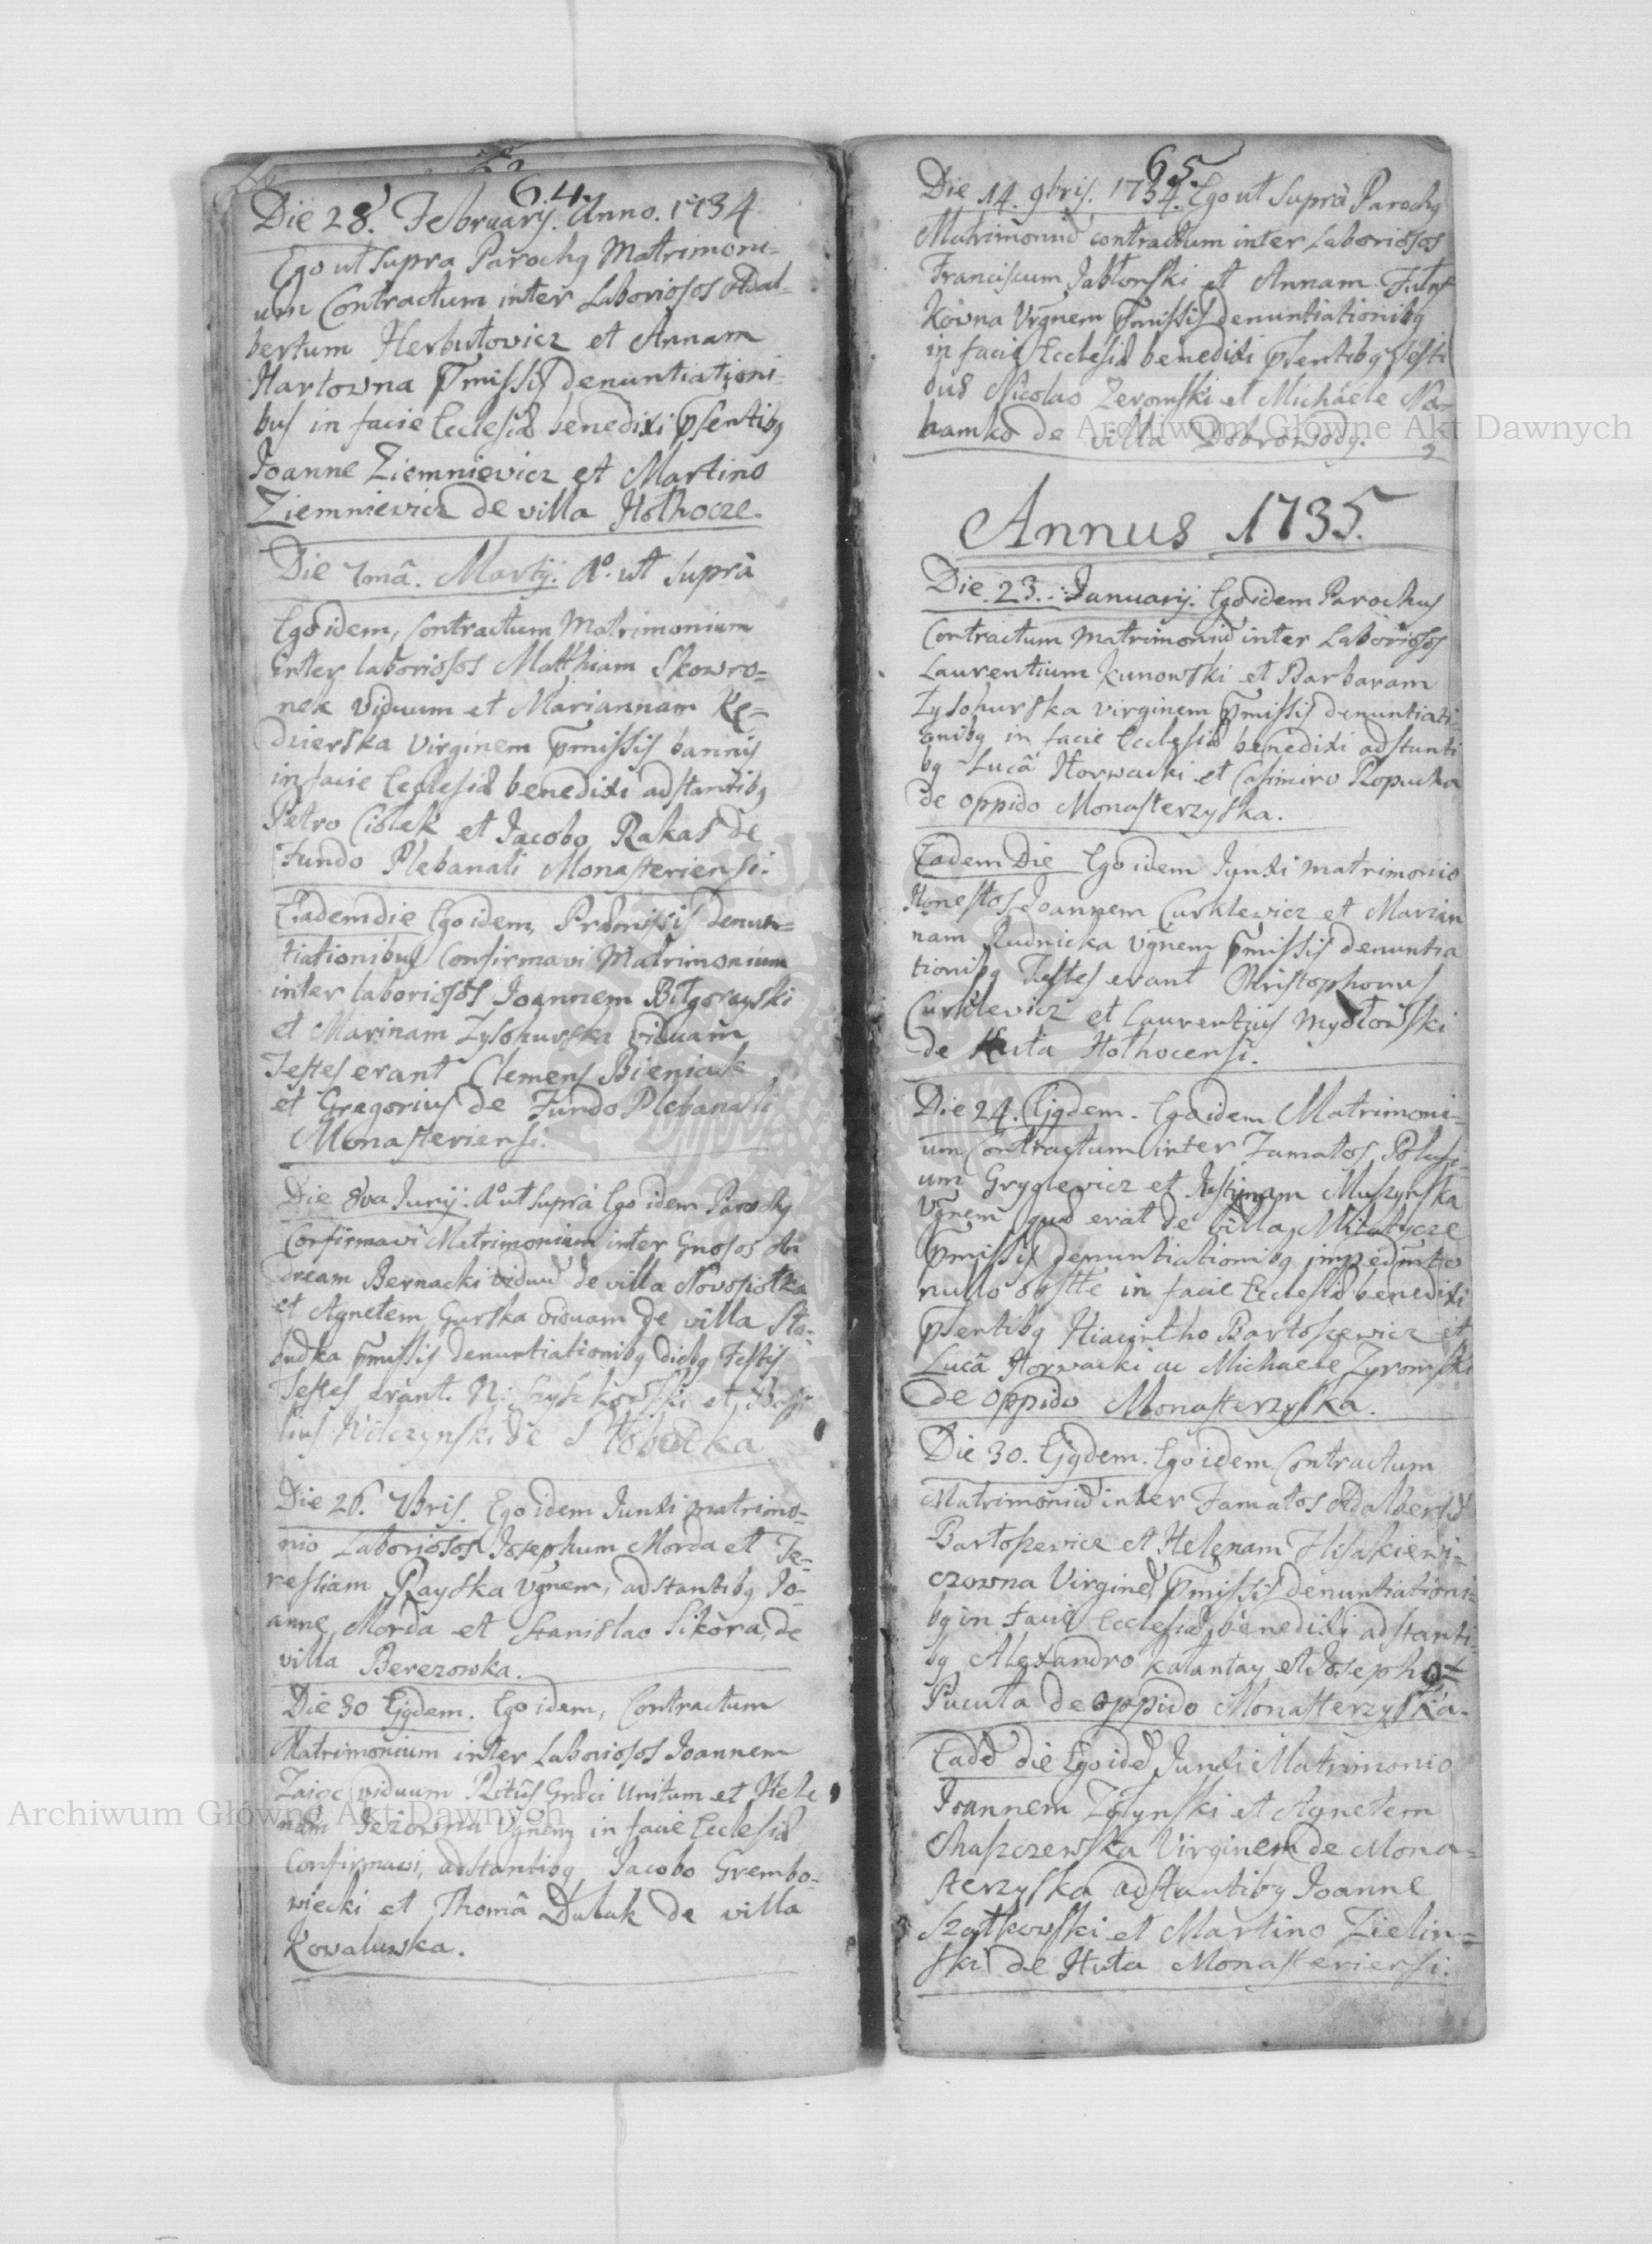 64.
Die 28. February. Anno. 1734
Ego ut supra Parochq Matrimoni-
um Contractum inter Laboriosos Adal-
bertum Herbutovicz et Annam
Hartowna pmissis denuntiationi-
bus in facie Ecclesiæ benedixi psentibq
Joanne Ziemnievicz et Martino
Ziemnievicz de villa Hołhocze.
Die 7mâ. Martij. Ao. ut suprà
Ego idem, Contractum Matrimonium
inter laboriosos Matthiam Skowro=
nek viduum et Mariannam Kę=
dzierska Virginem pmissis bannis
in facie Ecclesiæ benedixi adstantibq
Petro Ciołek et Jacobo Rakas de
Fundo Plebanali Monasteriensi.
Eadem die Ego idem, Præmissis denun=
tiationibus Confirmavi Matrimonium
inter laboriosos Joannem Biłgorayski
et Marinam Łysohurska viduam
Testes erant Clemens Bieniak
et Gregorius de Fundo Plebanali
Monasteriensi.
Die 8va Junij. Ao ut supra Ego idem Parochq
Confirmavi Matrimonium inter Gnosos An
dream Bernacki viduũ de villa
et Agnetem Gurska viduam de villa Sło-
budka pmissis denuntiationibq
Testes erant. N: et
Wilczynski de Słobudka
Die 26. 7bris. Ego idem Junxi matrimo-
nio Laboriosos Josephum Morda et Te=
ressiam Rayska Vgnem, adstantibq Jo-
anne Morda et Stanislao Sikora, de
villa Berezowka.
Die 30 Ejqdem. Ego idem, Contractum
Matrimonium inter Laboriosos Joannem
Zaiąc viduum Ritûs Græci Unitum et Hele
nam Vgnem in facie Ecclesiæ
Confirmavi, adstantibq Jacobo Grembo-
wiecki et Thomâ Dubak de villa
Kovaluwka.
65.
Die 14. 9bris. 1734. Ego ut supra Parochq
Matrimoniũ contractum inter Laboriosos
Franciscum Jabłonski et Annam
kowna Vrgnem pmissis denuntiationibq
in facie Ecclesiæ benedixi psentibq testi
bus Nicolao Zeromski et Michaele
de villa Dobrowody.
Annus 1735.
Die 23. Januarij. Ego idem Parochus
Contractum Matrimoniũ inter Laboriosos
Laurentium Kunowski et Barbaram
Łysohurska virginem pmissis denuntiati-
onibq in facie Ecclesiæ benedixi adstanti
bq Lucâ Horwacki et Casimiro Ropucha
de oppido Monasterzyska.
Eadem Die Ego idem Junxi matrimonio
Honestos Joannem Curklewicz et Marian
nam Rudnicka Vgnem pmissis denuntia
tionibq Testes erant Christophorus
Curklewicz et Laurentius Mydłowski
de Huta Hołhocensi.
Die 24. Ejqdem. Ego idem Matrimoni-
um Contractum inter Famatos
um Gryglewicz et Justynam Muszynska
Vgnem quæ erat de villa
pmissis denuntiationibq impedimto
nullo obstte in facie Ecclesiæ benedixi
psentibq Hiacintho Bartosewicz et
Lucâ Horwacki ac Michaele Zyromski
de oppido Monasterzyska.
Die 30. Ejqdem. Ego idem Contractum
Matrimoniũ inter Famatos Adalbertũ
Bartosewicz et Helenam Hisakiewi-
czowna Virginẽ pmissis denuntiationi-
bq in facie Ecclesiæ benedixi adstanti-
bq Alexandro Kałantay et Josepho
Pucuta de oppido Monasterzyska.
Eadẽ die Ego idẽ Junxi Matrimonio
Joannem et Agnetem
Virginem de Mona-
sterzyska adstantibq Joanne
Szotkowski et Martino Zielin-
ski de Huta Monasteriensi.
Archiwum Główne Akt Dawnych
Archiwum Główne Akt Dawnych